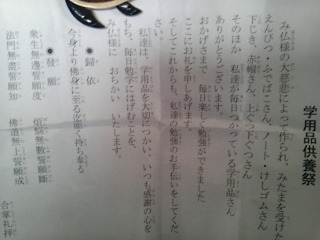 学用品供養祭
み仏様の大慈悲によって作られ、みたまを受けた
えんぴつ・ふでばこさん、ノート・けしゴムさん
下じき、赤帽さん、上ぐつ下ぐつさん
そのほか、私達が毎日つかっている学用品さん
ありがとうございます。
おかげさまで 毎日楽しく勉強ができました。
ここにお礼を申しあげます。
そしてこれからも、私達の勉強のお手伝いをしてくだ
さい。
私達は、学用品を大切につかい、いつも感謝の心を
もち、毎日勉学にはげむことを、
み仏様に おちかい いたします。
◆歸依
今身より佛身に至るまで持ち奉る
◆發願
衆生無邊誓願度 煩悩無数誓願断
法門無盡誓願知 佛道無上誓願成
合掌礼拝